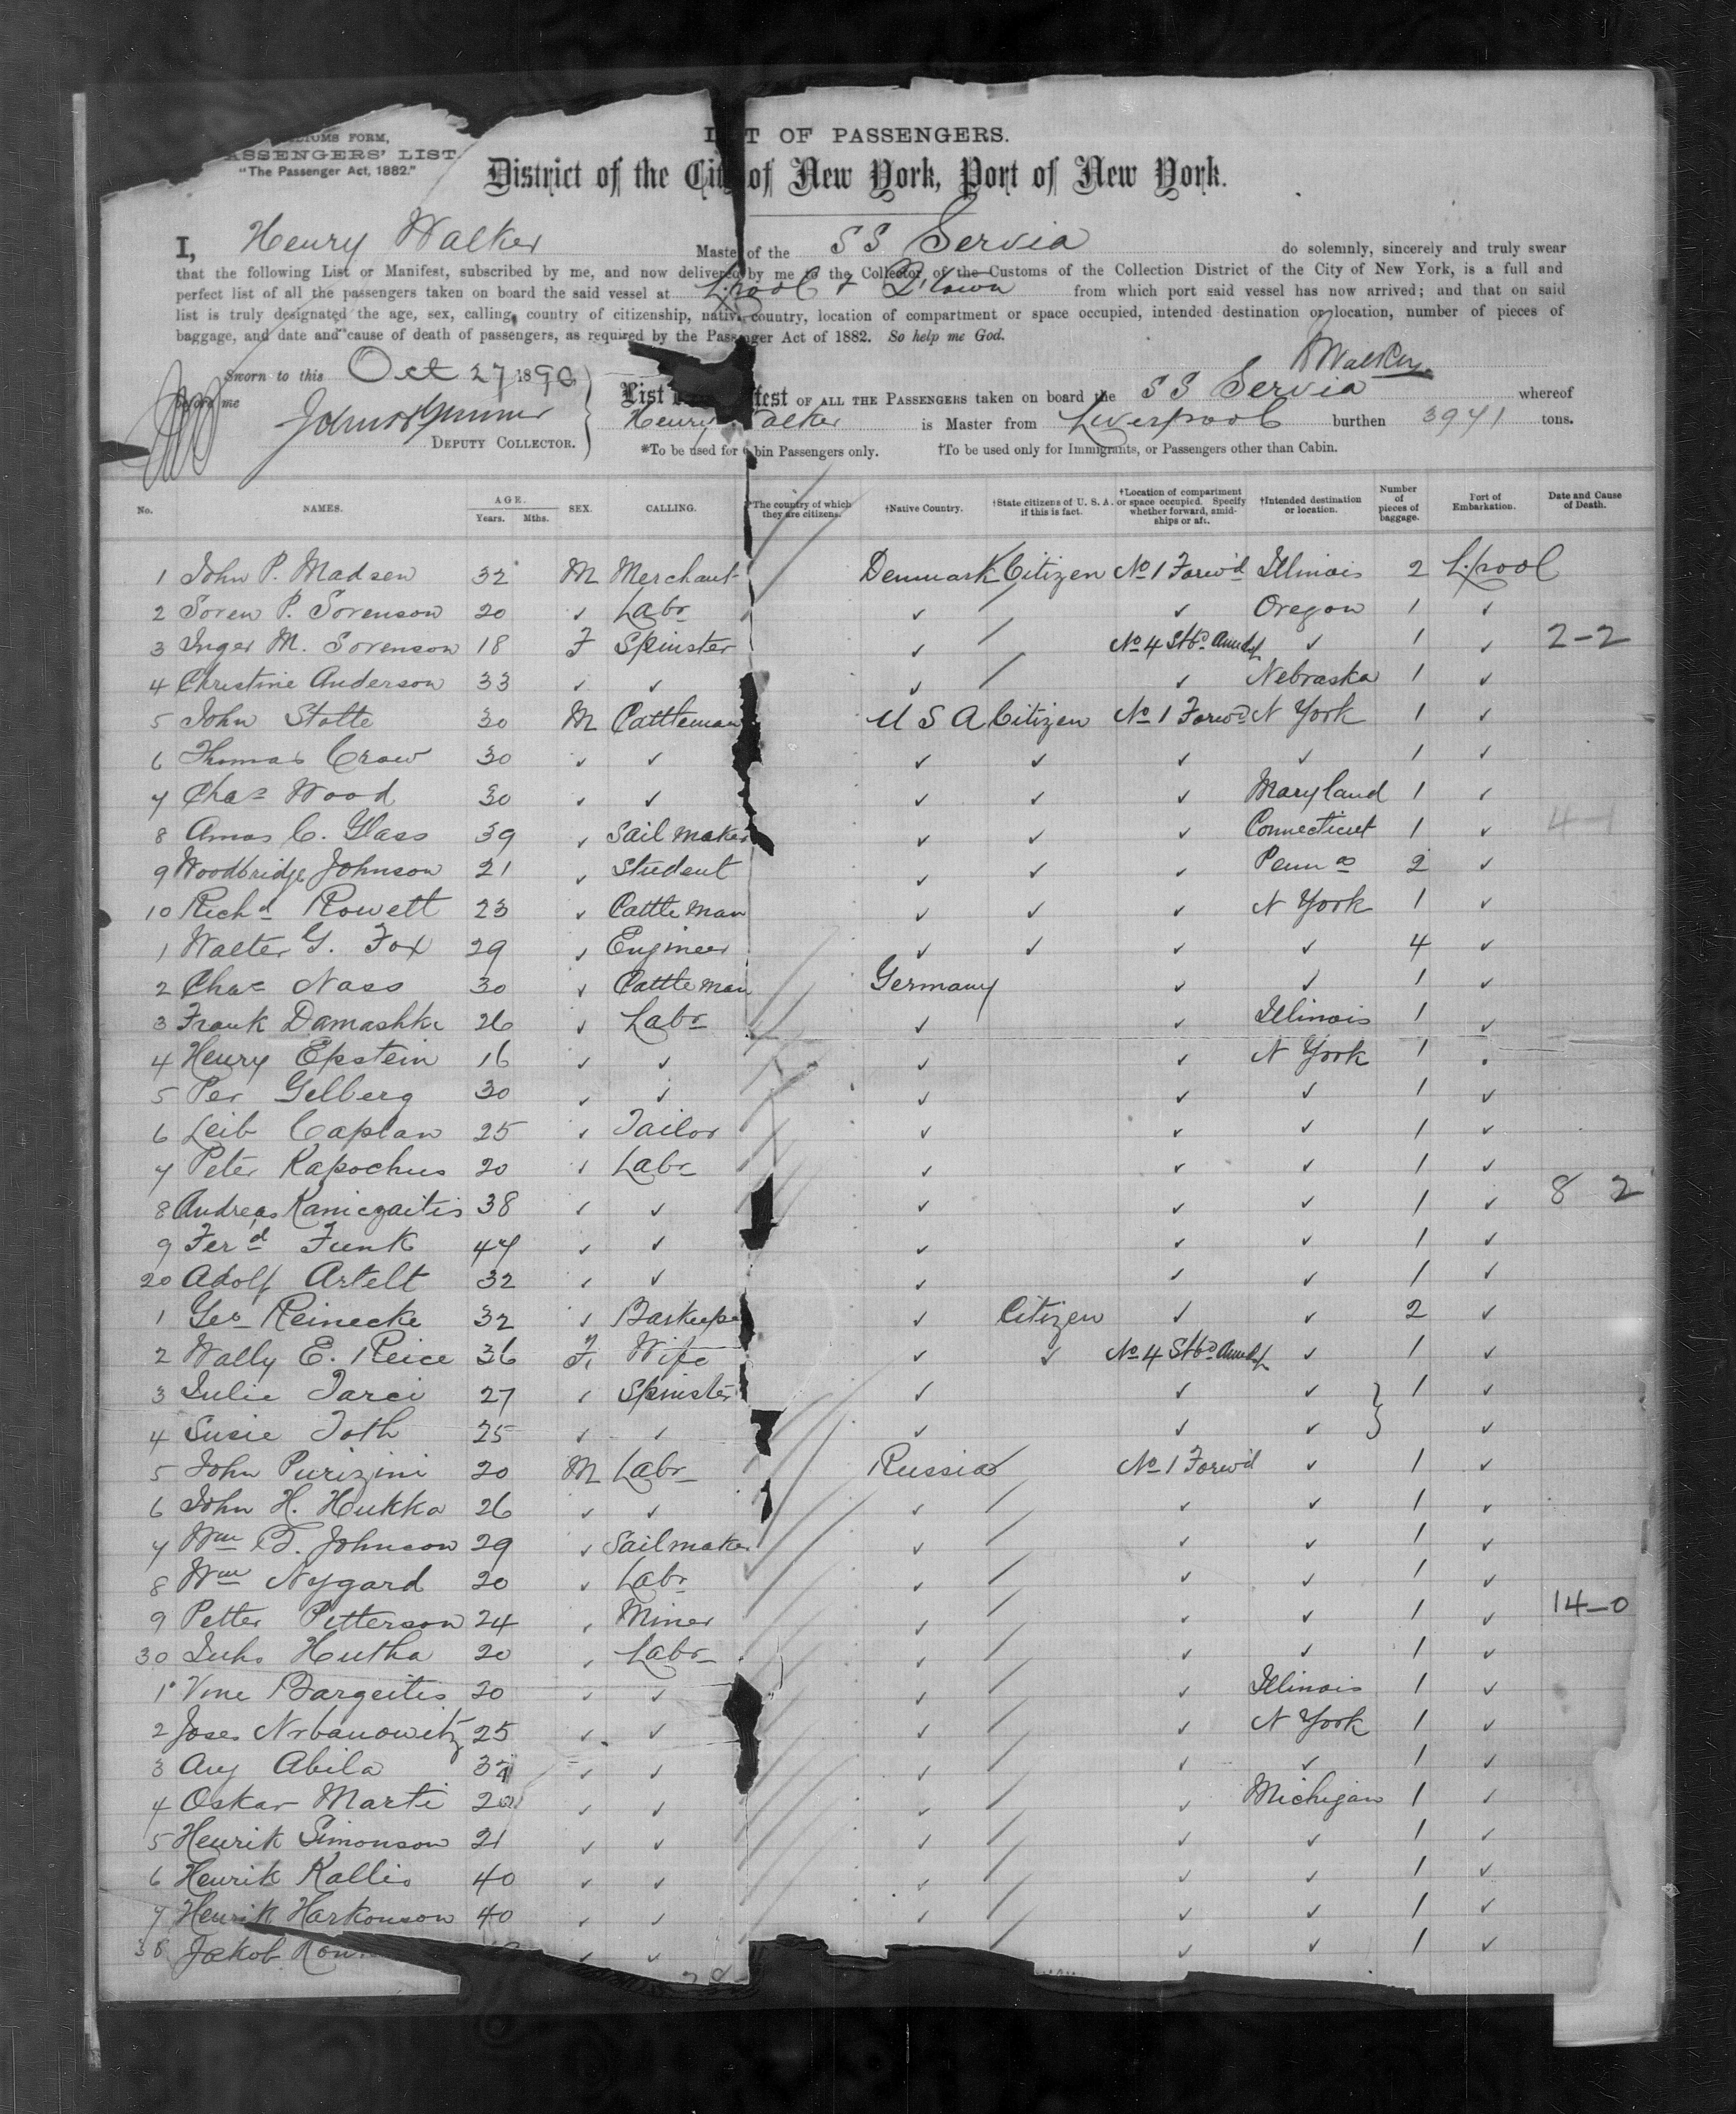 TOMS FORM,
ASSENGERS' LIST.
"The Passenger Act, 1882."
T OF PASSENGERS.
District of the City of New York, Port of New York.
I, Henry Walker Master of the SS Servia do solemnly, sincerely and truly swear
that the following List or Manifest, subscribed by me, and now delivered by me to the Collector of the Customs of the Collection District of the City of New York, is a full and
perfect list of all the passengers taken on board the said vessel at L'pool & Q'town from which port said vessel has now arrived; and that on said
list is truly designated the age, sex, calling, country of citizenship, native country, location of compartment or space occupied, intended destination or location, number of pieces of
baggage, and date and cause of death of passengers, as required by the Passenger Act of 1882. So help me God.
HWalker
Sworn to this Oct 27 1890
before me
DEPUTY COLLECTOR.
List fest OF ALL THE PASSENGERS taken on board the SS Servia whereof
Henry Walker is Master from Liverpool burthen 3971 tons.
*To be used for Cabin Passengers only. †To be used only for Immigrants, or Passengers other than Cabin.
No. NAMES. AGE. Years. Mths. SEX. CALLING. *The country of which they are citizens. †Native Country. †State citizens of U. S. A. if this is fact. †Location of compartment or space occupied. Specify whether forward, amidships or aft. †Intended destination or location. Number of pieces of baggage. Port of Embarkation. Date and Cause of Death.
1 John P. Madsen 32 M Merchant Denmark Citizen No 1 Forw'd Illinois 2 L'pool
2 Soren P. Sorenson 20 ✓ Labr ✓ / ✓ Oregon 1 ✓
3 Inger M. Sorenson 18 F Spinster ✓ / No 4 Stbd ✓ 1 ✓ 2-2
4 Christine Anderson 33 ✓ ✓ ✓ / ✓ Nebraska 1 ✓
5 John Stotte 30 M Cattleman U S A Citizen No 1 Forwd N York 1 ✓
6 Thomas Crow 30 ✓ ✓ ✓ ✓ ✓ ✓ 1 ✓
7 Chas Wood 30 ✓ ✓ ✓ ✓ ✓ Maryland 1 ✓
8 Amos C. Glass 39 ✓ Sail maker ✓ ✓ ✓ Connecticut 1 ✓ 4-1
9 Woodbridge Johnson 21 ✓ Student ✓ ✓ ✓ Penna 2 ✓
10 Richd Rowett 23 ✓ Cattle man ✓ ✓ ✓ N York 1 ✓
1 Walter G. Fox 29 ✓ Engineer ✓ ✓ ✓ ✓ 4 ✓
2 Chas Nass 30 ✓ Cattle man Germany ✓ ✓ 1 ✓
3 Frank Damashke 26 ✓ Labr ✓ ✓ Illinois 1 ✓
4 Henry Epstein 16 ✓ ✓ ✓ ✓ N York 1 ✓
5 Per Gelberg 30 ✓ ✓ ✓ ✓ ✓ 1 ✓
6 Leib Caplan 25 ✓ Tailor ✓ ✓ ✓ 1 ✓
7 Peter Kapochus 20 ✓ Labr ✓ ✓ ✓ 1 ✓
8 Andreas Kaniczaitis 38 ✓ ✓ ✓ ✓ ✓ 1 ✓ 8 2
9 Ferd Funk 47 ✓ ✓ ✓ ✓ ✓ 1 ✓
20 Adolf Artelt 32 ✓ ✓ ✓ ✓ ✓ 1 ✓
1 Geo Reinecke 32 ✓ Barkeeper ✓ Citizen ✓ ✓ 2 ✓
2 Wally E. Reice 36 F Wife ✓ ✓ No 4 Stbd ✓ 1 ✓
3 Julie Tarci 27 ✓ Spinster ✓ ✓ ✓ } 1 ✓
4 Susie Toth 25 ✓ ✓ ✓ ✓ ✓ ✓
5 John Purizini 20 M Labr Russia No 1 Forw'd ✓ 1 ✓
6 John H. Hukka 26 ✓ ✓ ✓ / ✓ ✓ 1 ✓
7 Wm B. Johnson 29 ✓ Sailmaker ✓ / ✓ ✓ 1 ✓
8 Wm Nygard 20 ✓ Labr ✓ / ✓ ✓ 1 ✓
9 Petter Petterson 24 ✓ Miner ✓ / ✓ ✓ 1 ✓ 14-0
30 Juho Hutha 20 ✓ Labr ✓ / ✓ ✓ 1 ✓
1 Vine Bargeitis 20 ✓ ✓ ✓ / ✓ Illinois 1 ✓
2 Joses Nrbanowitz 25 ✓ ✓ ✓ / ✓ N York 1 ✓
3 Aug Abila ✓ ✓ ✓ / ✓ ✓ 1 ✓
4 Oskar Marti ✓ ✓ ✓ / ✓ Michigan 1 ✓
5 Henrik Simonson 21 ✓ ✓ ✓ / ✓ ✓ 1 ✓
6 Henrik Kallis 40 ✓ ✓ ✓ / ✓ ✓ 1 ✓
7 Henrik Harkonson 40 ✓ ✓ ✓ / ✓ ✓ 1 ✓
38 Jakob ✓ ✓ / ✓ ✓ 1 ✓